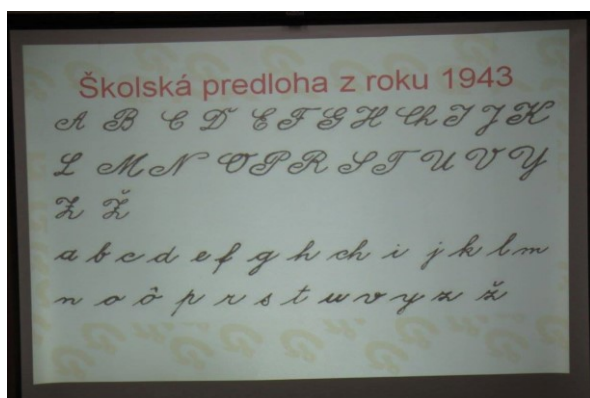 Školská predloha z roku 1943
A B C D E F G H Ch I J K
L M N O P R S T U V Y
Z Ž
a b c d e f g h ch i j k l m
n o ô p r s t u v y z ž